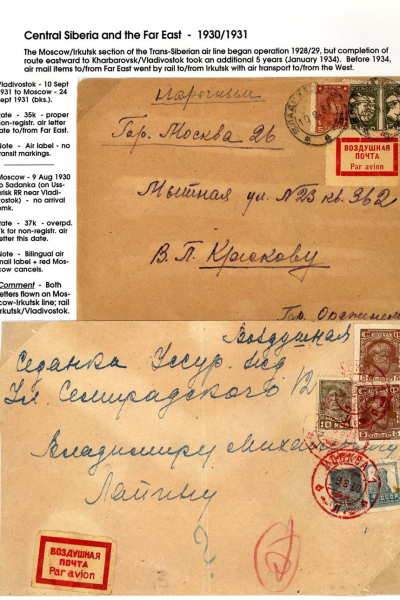 Central Siberia and the Far East - 1930/1931
The Moscow/Irkutsk section of the Trans-Siberian air line began operation 1928/29, but completion of
route eastward to Kharbarovsk/Vladivostok took an additional 5 years (January 1934). Before 1934,
air mail items to/from Far East went by rail to/from Irkutsk with air transport to/from the West.
Vladivostok - 10 Sept
1931 to Moscow - 24
Sept 1931 (bks.).
Rate - 35k - proper
non-registr. air letter
rate to/from Far East.
Note - Air label - no
transit markings.
Moscow - 9 Aug 1930
to Sadanka (on Uss-
urisk RR near Vladi-
vostok) - no arrival
pmk.
Rate - 37k - overpd.
for non-registr. air
letter this date.
Note - Bilingual air
mail label + red Mos-
cow cancels.
Comment - Both
letters flown on Mos-
cow-Irkutsk line; rail
Irkutsk/Vladivostok.
Нарочным
Гор. Москва 26
ВОЗДУШНАЯ
ПОЧТА
Par avion
Мытная ул. N 23 кв. 362
В. П. Крюкову
Воздушная
Седанка Уссур. жд
Ул. Семирадского 12
Владимиру
Лапину
10 КОП
МОСКВА
9 8 30
ВОЗДУШНАЯ
ПОЧТА
Par avion